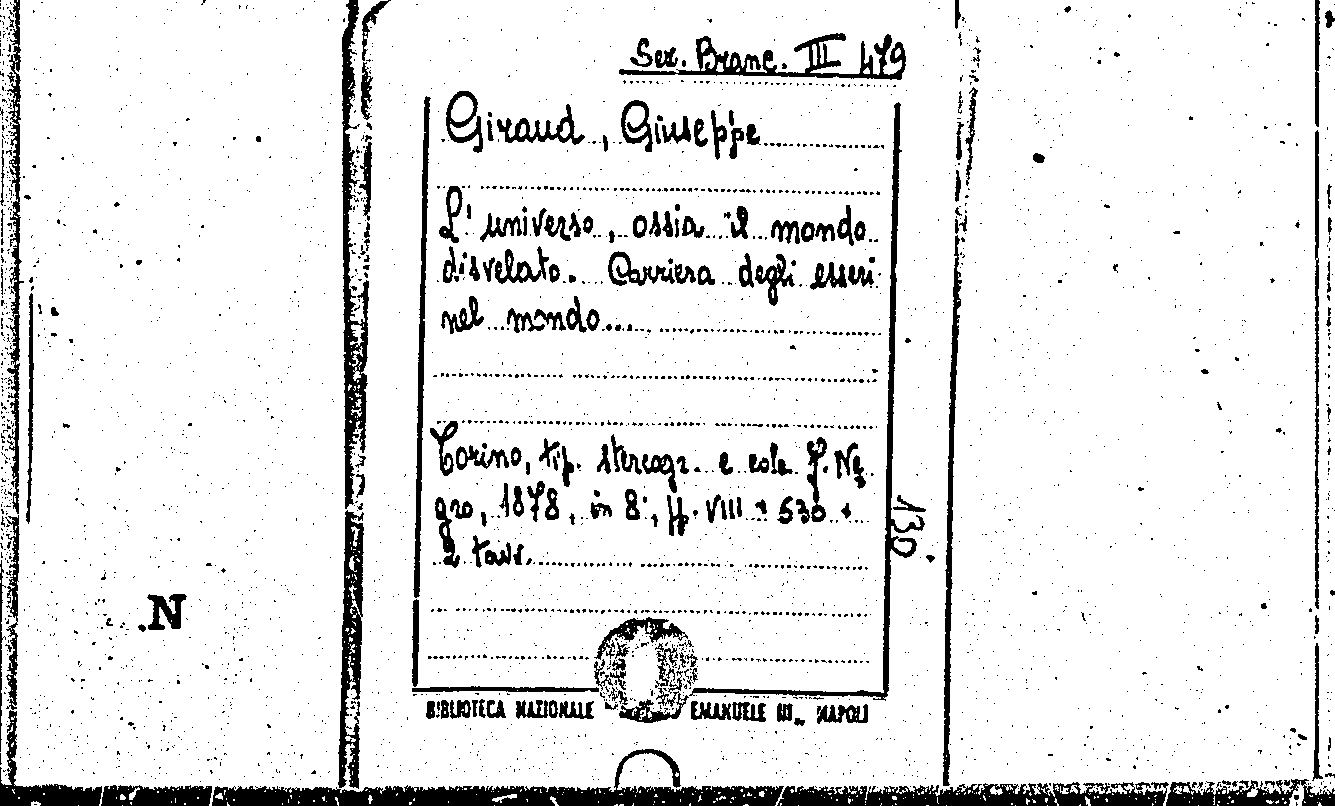 Sez. Branc. III 479
Giraud, Giuseppe
L'universo, ossia il mondo
disvelato. Carriera degli esseri
nel mondo...
Torino, tip. stereogr. e cele. F. Ne
gro, 1878, in 8°, pp. VIII + 530 +
2 tavv.
130
.N
BIBLIOTECA NAZIONALE EMANUELE III_ NAPOLI